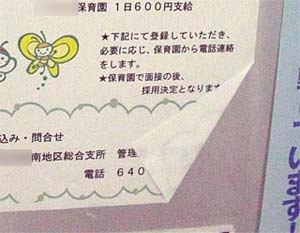 保育園 1日600円支給
★下記にて登録していただき、
必要に応じ、保育園から電話連絡
をします。
★保育園で面接の後、
採用決定となります
込み・問合せ
南地区総合支所 管理
電話 640